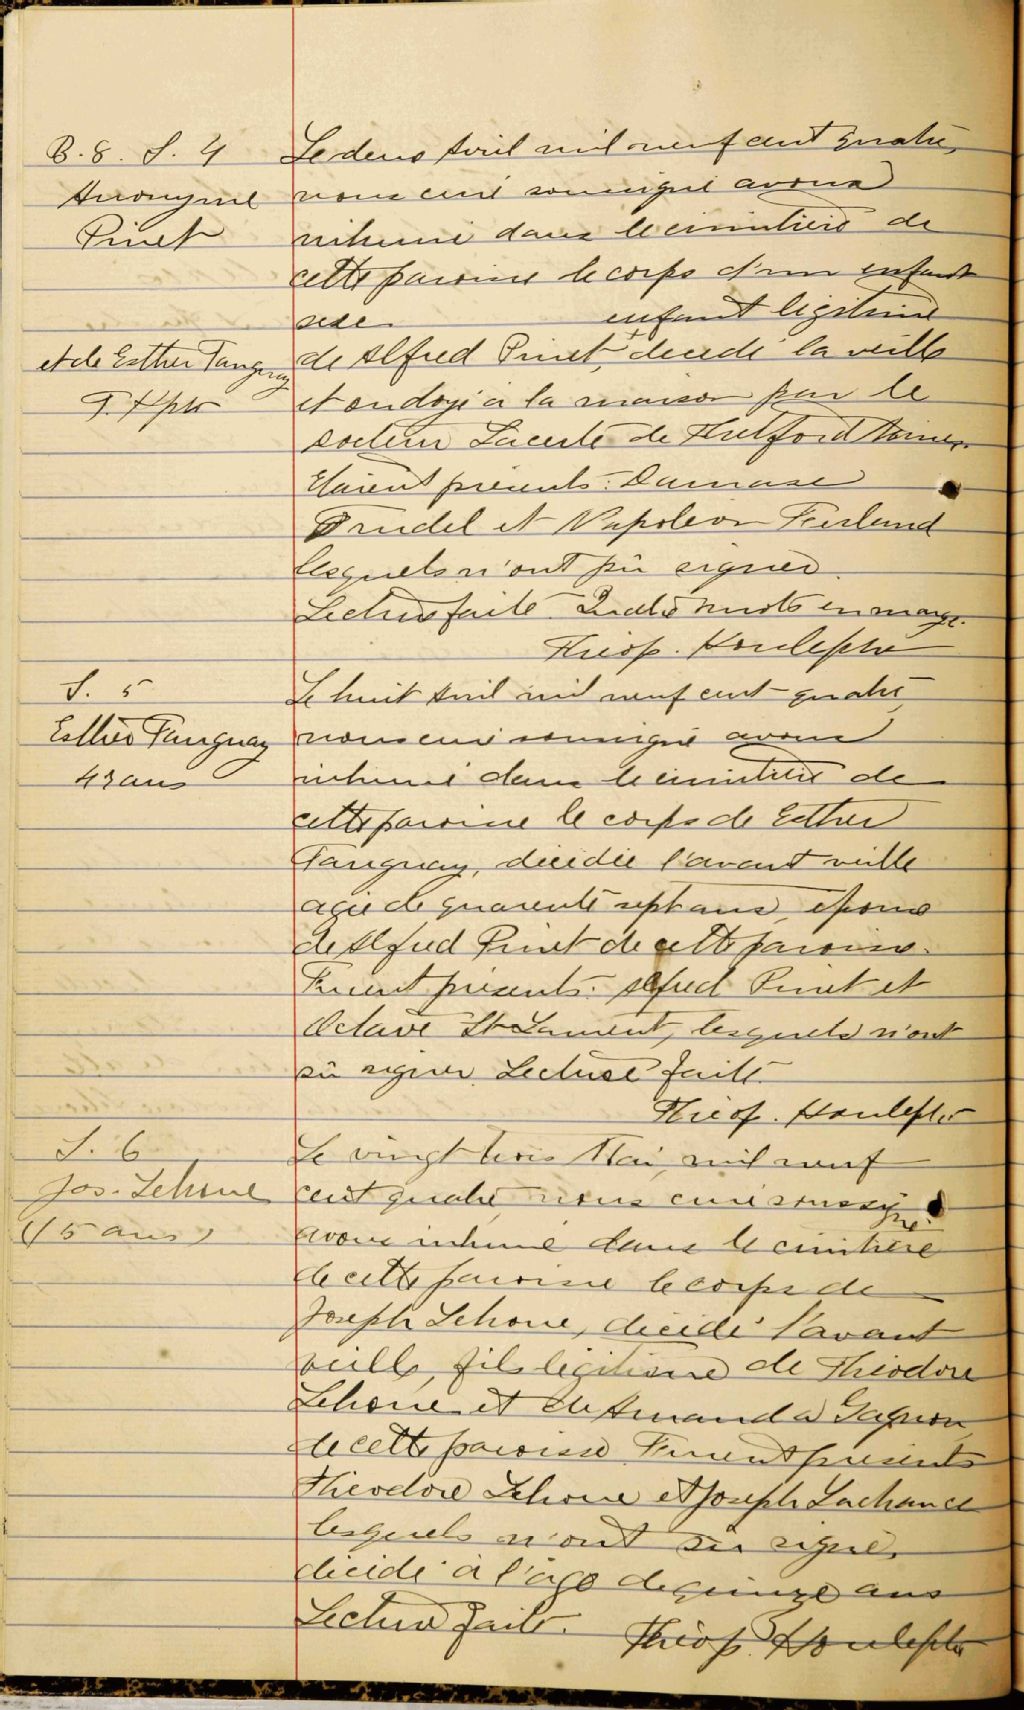 B. 8. S. 4
Anonyme
Pinet
Le deux Avril mil neuf cent quatre,
nous curé soussigné avons
inhumé dans le cimetière de
cette paroisse le corps d'un enfant
sexe enfant légitime
de Alfred Pinet, + décédé la veille
et de Esther Tanguay
T. H ptre
et ondoyé à la maison par le
docteur Lacerte de Thetford Mines.
Etaient présents: Damase
Trudel et Napoléon Ferland
lesquels n'ont pû signer.
Lecture faite. Quatre mots en marge.
Théop. Houle ptre
S. 5
Esther Tanguay
47 ans
Le huit Avril mil neuf cent quatre,
nous curé soussigné avons
inhumé dans le cimetière de
cette paroisse le corps de Esther
Tanguay, décédée l'avant veille
agée de quarente sept ans, épouse
de Alfred Pinet de cette paroisse.
Furent présents: Alfred Pinet et
Octave St-Laurent, lesquels n'ont
sû signer. Lecture faite.
Théop. Houle ptre
S. 6
Jos. Lehoue
(15 ans)
Le vingt trois Mai, mil neuf
cent quatre, nous curé soussigné
avons inhumé dans le cimitière
de cette paroisse le corps de
Joseph Lehoue, décédé l'avant
veille, fils légitime de Théodore
Lehoue et de Amanda Gagnon,
de cette paroisse. Furent présents
Théodore Lehoue et Joseph Lachance
lesquels n'ont sû signer,
décédé à l'âge de quinze ans
Lecture faite.
Théop. Houle ptre